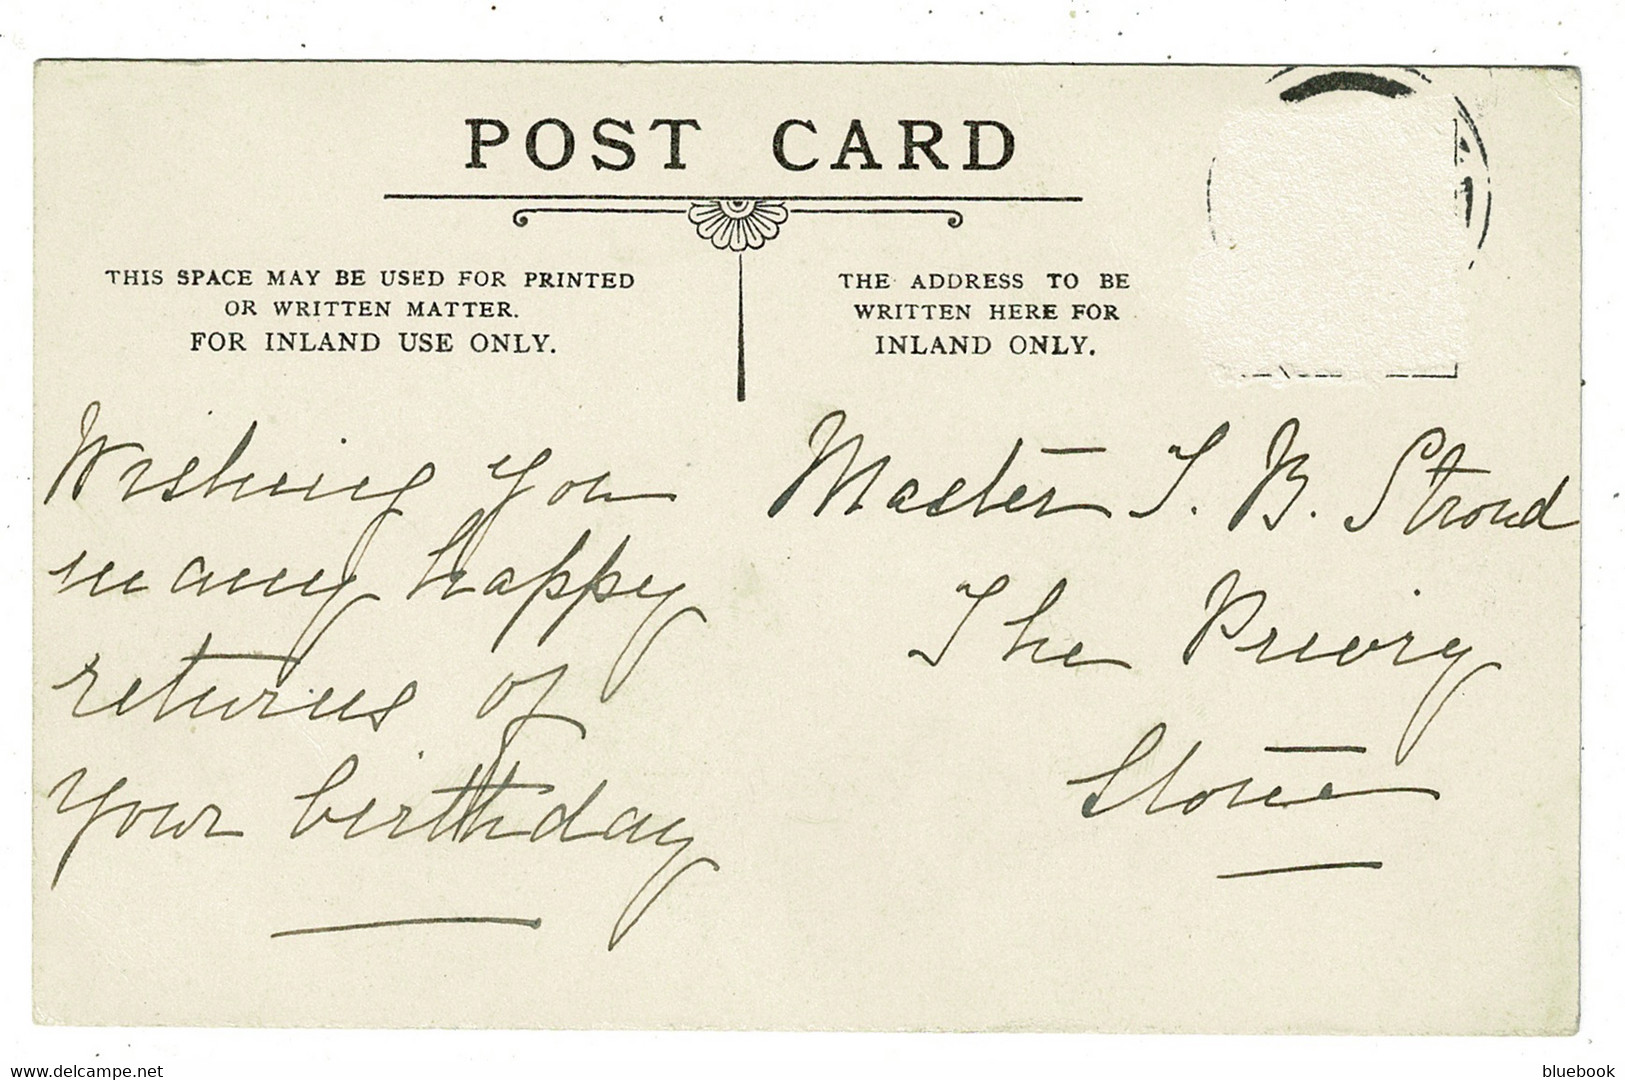 POST CARD
THIS SPACE MAY BE USED FOR PRINTED
OR WRITTEN MATTER.
FOR INLAND USE ONLY.
THE ADDRESS TO BE
WRITTEN HERE FOR
INLAND ONLY.
Wishing you
many happy
returns of
your birthday
Master T. B. Stroud
The Priory
Stone
www.delcampe.net
bluebook